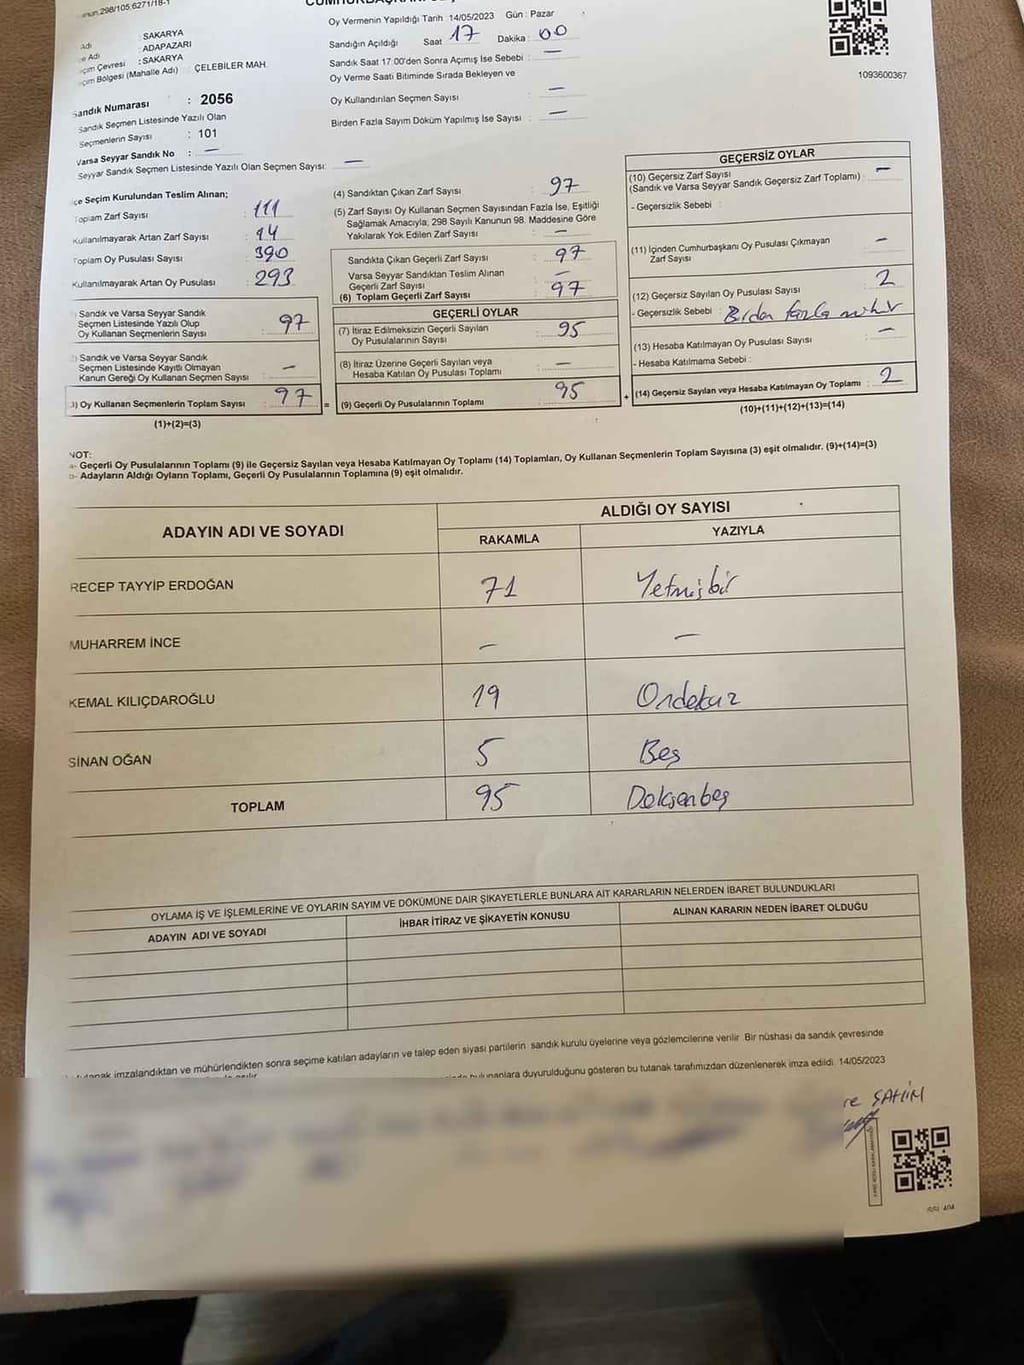 298/105,6271/18-1
Oy Vermenin Yapıldığı Tarih 14/05/2023 Gün : Pazar
Adı : SAKARYA
e Adı : ADAPAZARI
çim Çevresi : SAKARYA
çim Bölgesi (Mahalle Adı) : ÇELEBİLER MAH.
Sandığın Açıldığı Saat 17 Dakika : 00
Sandık Saat 17.00'den Sonra Açımış İse Sebebi : —
Oy Verme Saati Bitiminde Sırada Bekleyen ve
Oy Kullandırılan Seçmen Sayısı : —
Birden Fazla Sayım Döküm Yapılmış İse Sayısı : —
1093600367
Sandık Numarası : 2056
Sandık Seçmen Listesinde Yazılı Olan
Seçmenlerin Sayısı : 101
Varsa Seyyar Sandık No : —
Seyyar Sandık Seçmen Listesinde Yazılı Olan Seçmen Sayısı: —
çe Seçim Kurulundan Teslim Alınan;
Toplam Zarf Sayısı : 111
Kullanılmayarak Artan Zarf Sayısı : 14
Toplam Oy Pusulası Sayısı : 390
Kullanılmayarak Artan Oy Pusulası : 293
) Sandık ve Varsa Seyyar Sandık
Seçmen Listesinde Yazılı Olup
Oy Kullanan Seçmenlerin Sayısı : 97
) Sandık ve Varsa Seyyar Sandık
Seçmen Listesinde Kayıtlı Olmayan
Kanun Gereği Oy Kullanan Seçmen Sayısı : —
3) Oy Kullanan Seçmenlerin Toplam Sayısı : 97 =
(1)+(2)=(3)
(4) Sandıktan Çıkan Zarf Sayısı : 97
(5) Zarf Sayısı Oy Kullanan Seçmen Sayısından Fazla İse, Eşitliği
Sağlamak Amacıyla, 298 Sayılı Kanunun 98. Maddesine Göre
Yakılarak Yok Edilen Zarf Sayısı : —
Sandıkta Çıkan Geçerli Zarf Sayısı : 97
Varsa Seyyar Sandıktan Teslim Alınan
Geçerli Zarf Sayısı : —
(6) Toplam Geçerli Zarf Sayısı : 97
GEÇERLİ OYLAR
(7) İtiraz Edilmeksizin Geçerli Sayılan
Oy Pusulalarının Sayısı : 95
(8) İtiraz Üzerine Geçerli Sayılan veya
Hesaba Katılan Oy Pusulası Toplamı : —
(9) Geçerli Oy Pusulalarının Toplamı : 95 +
GEÇERSİZ OYLAR
(10) Geçersiz Zarf Sayısı
(Sandık ve Varsa Seyyar Sandık Geçersiz Zarf Toplamı) : —
- Geçersizlik Sebebi :
(11) İçinden Cumhurbaşkanı Oy Pusulası Çıkmayan
Zarf Sayısı : —
(12) Geçersiz Sayılan Oy Pusulası Sayısı : 2
- Geçersizlik Sebebi : Birden fazla mühür
(13) Hesaba Katılmayan Oy Pusulası Sayısı : —
- Hesaba Katılmama Sebebi :
(14) Geçersiz Sayılan veya Hesaba Katılmayan Oy Toplamı : 2
(10)+(11)+(12)+(13)=(14)
NOT:
a- Geçerli Oy Pusulalarının Toplamı (9) ile Geçersiz Sayılan veya Hesaba Katılmayan Oy Toplamı (14) Toplamları, Oy Kullanan Seçmenlerin Toplam Sayısına (3) eşit olmalıdır. (9)+(14)=(3)
b- Adayların Aldığı Oyların Toplamı, Geçerli Oy Pusulalarının Toplamına (9) eşit olmalıdır.
ADAYIN ADI VE SOYADI
ALDIĞI OY SAYISI
RAKAMLA YAZIYLA
RECEP TAYYİP ERDOĞAN 71 Yetmişbir
MUHARREM İNCE — —
KEMAL KILIÇDAROĞLU 19 Ondokuz
SİNAN OĞAN 5 Beş
TOPLAM 95 Doksanbeş
OYLAMA İŞ VE İŞLEMLERİNE VE OYLARIN SAYIM VE DÖKÜMÜNE DAİR ŞİKAYETLERLE BUNLARA AİT KARARLARIN NELERDEN İBARET BULUNDUKLARI
ADAYIN ADI VE SOYADI İHBAR İTİRAZ VE ŞİKAYETİN KONUSU ALINAN KARARIN NEDEN İBARET OLDUĞU
tutanak imzalandıktan ve mühürlendikten sonra seçime katılan adayların ve talep eden siyasi partilerin sandık kurulu üyelerine veya gözlemcilerine verilir. Bir nüshası da sandık çevresinde
bulunanlara duyurulduğunu gösteren bu tutanak tarafımızdan düzenlenerek imza edildi. 14/05/2023
re ŞAHİN